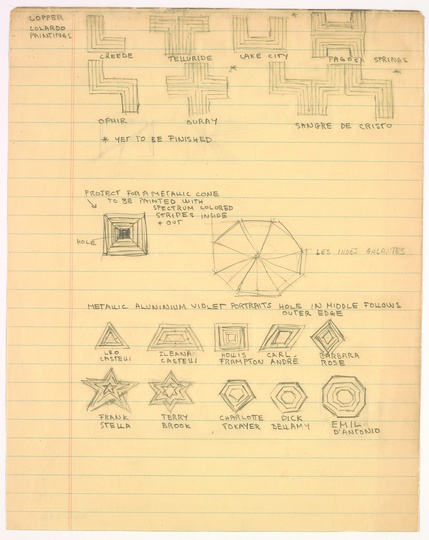 COPPER
COLARDO
PAINTINGS
CREEDE
TELLURIDE
LAKE CITY
PAGOSA SPRINGS
OPHIR
OURAY
SANGRE DE CRISTO
* YET TO BE FINISHED
PROJECT FOR A METALLIC CONE
TO BE PAINTED WITH
SPECTRUM COLORED
STRIPES INSIDE
+ OUT
HOLE
LES INDES GALANTES
METALLIC ALUMINIUM VIOLET PORTRAITS HOLE IN MIDDLE FOLLOWS
OUTER EDGE
LEO
CASTELLI
ILEANA
CASTELLI
HOLLIS
FRAMPTON
CARL
ANDRÉ
BARBARA
ROSE
FRANK
STELLA
TERRY
BROOK
CHARLOTTE
TOKAYER
DICK
BELLAMY
EMIL
D'ANTONIO